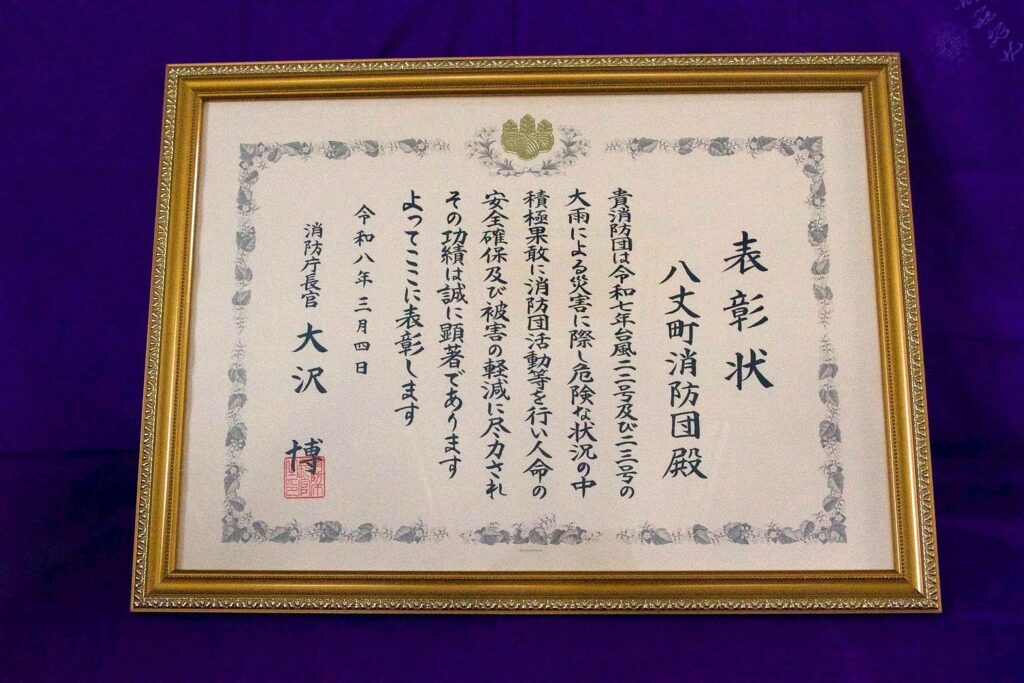 表彰状
八丈町消防団殿
貴消防団は令和七年台風二二号及び二三号の
大雨による災害に際し危険な状況の中
積極果敢に消防団活動等を行い人命の
安全確保及び被害の軽減に尽力され
その功績は誠に顕著であります
よってここに表彰します
令和八年三月四日
消防庁長官 大沢 博